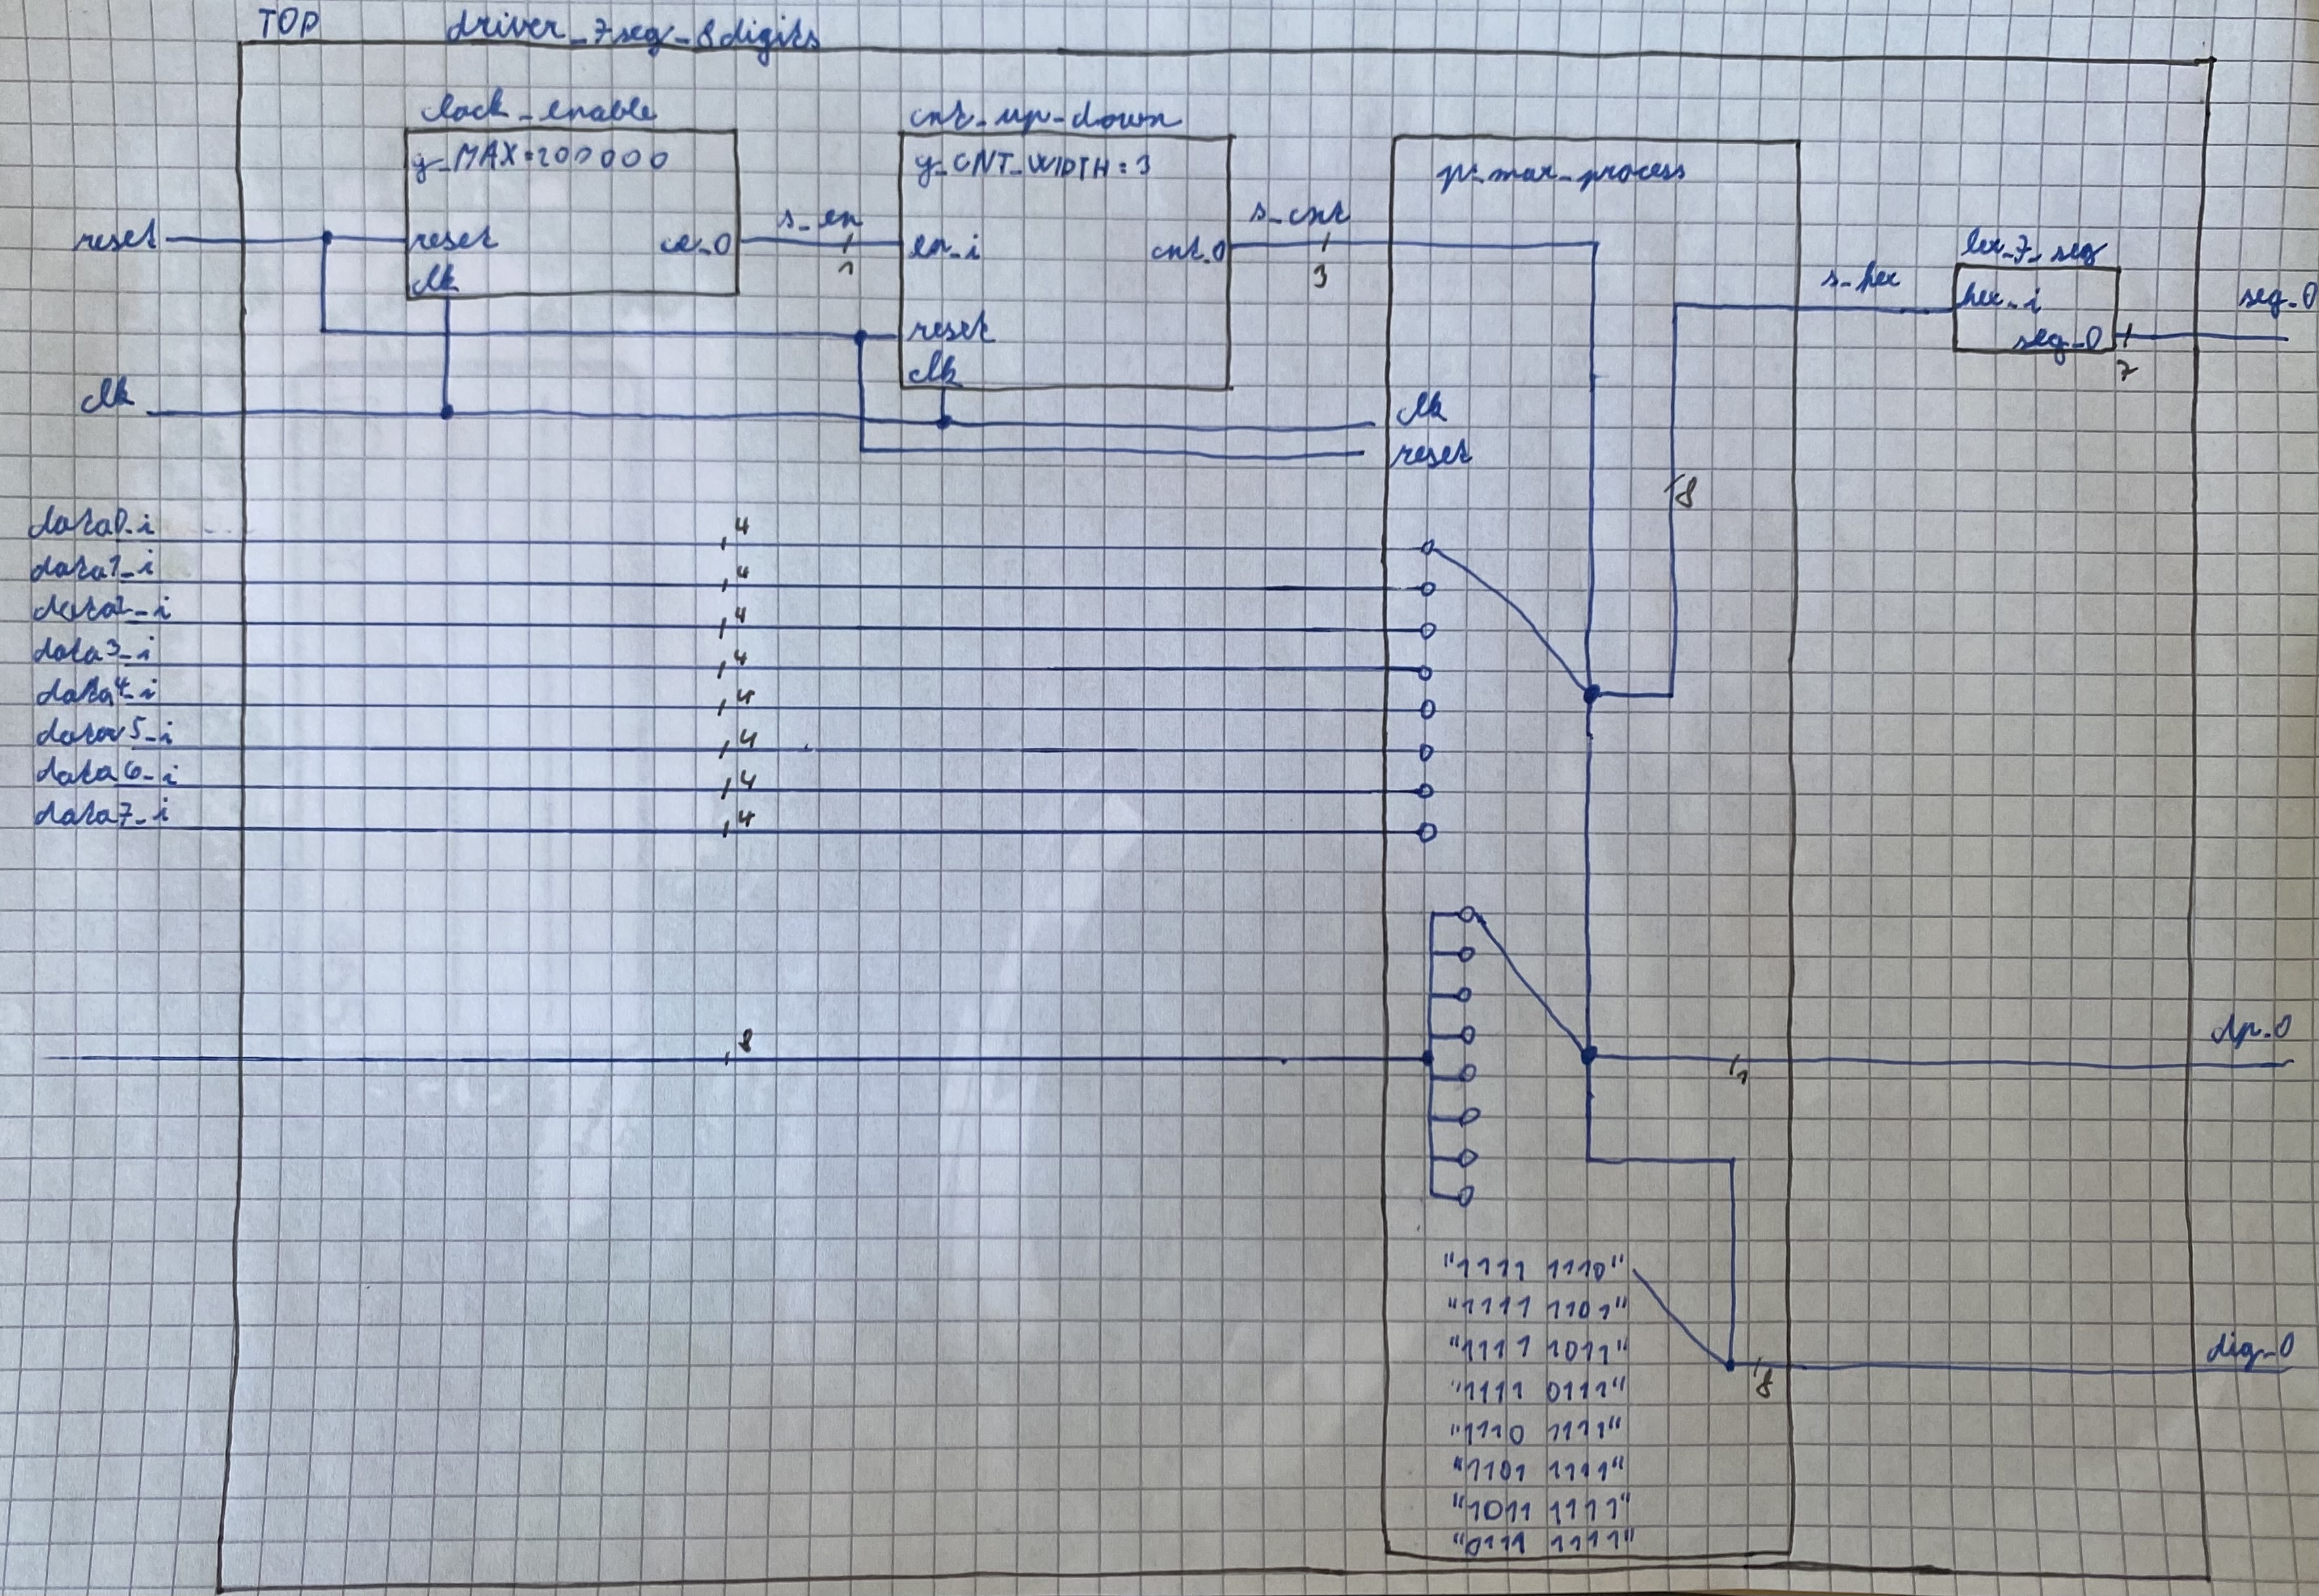 TOP driver_7seg_8digits
clock_enable
g_MAX=200000
reset
ce_O
clk
s_en
1
cnt_up_down
g_CNT_WIDTH=3
en_i
cnt_O
reset
clk
s_cnt
3
p_mux_process
clk
reset
8
s_hex
hex_7_seg
hex_i
seg_O
7
seg_O
reset
clk
data0_i 4
data1_i 4
data2_i 4
data3_i 4
data4_i 4
data5_i 4
data6_i 4
data7_i 4
8
1
dp_O
"1111 1110"
"1111 1101"
"1111 1011"
"1111 0111"
"1110 1111"
"1101 1111"
"1011 1111"
"0111 1111"
8
dig_O